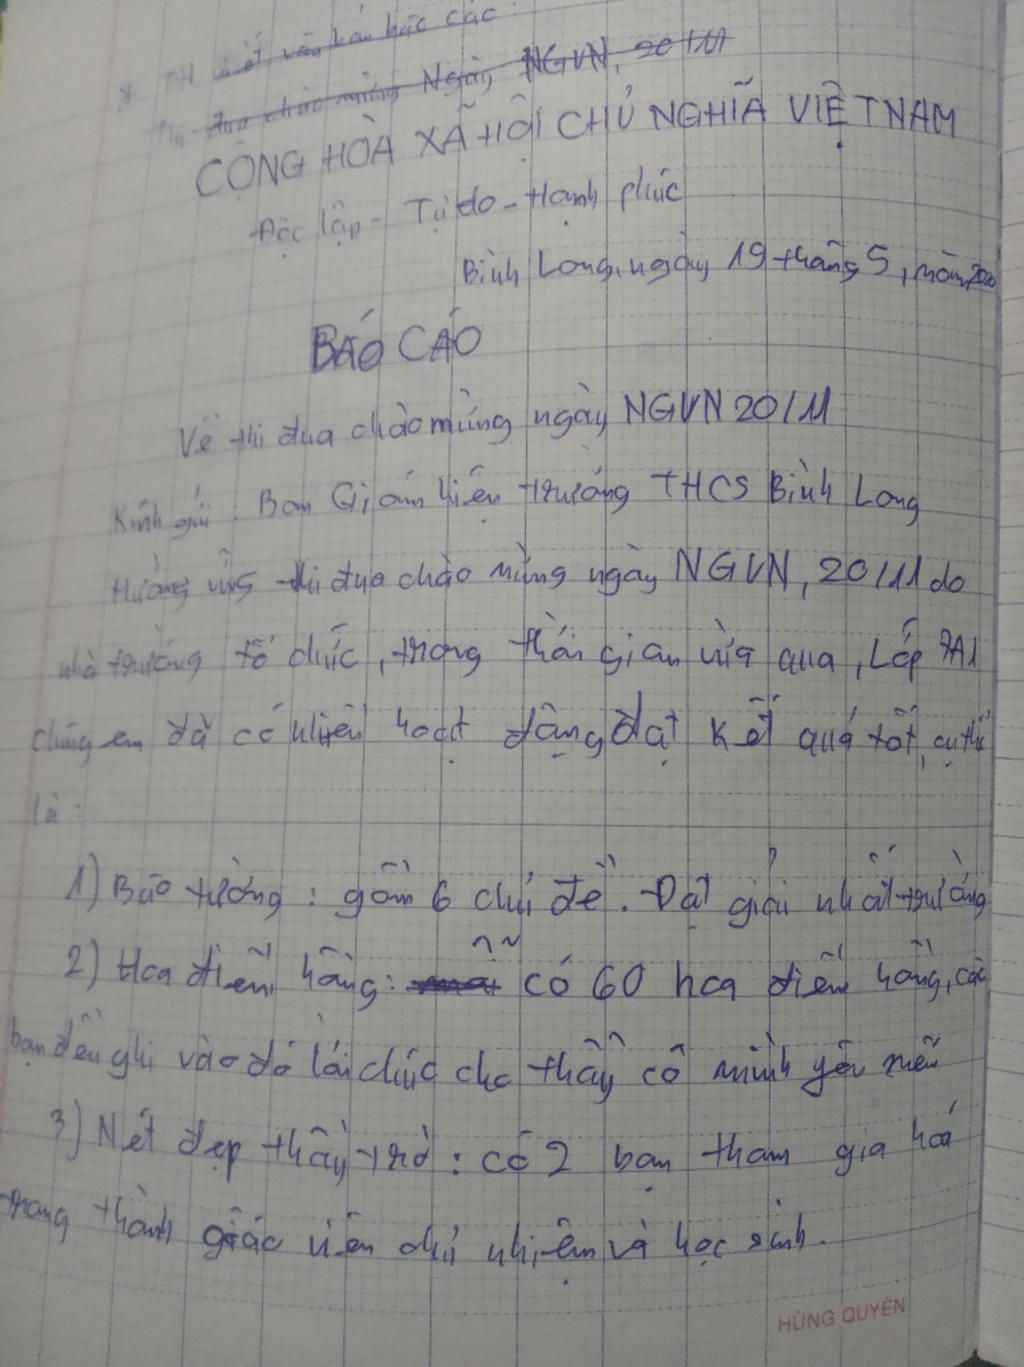 * TH viết văn bản báo cáo
thi đua chào mừng Ngày NGVN, 20/11
CỘNG HÒA XÃ HỘI CHỦ NGHĨA VIỆT NAM
Độc lập - Tự do - Hạnh phúc
Bình Long, ngày 19 tháng 5, năm 2020
BÁO CÁO
Về thi đua chào mừng ngày NGVN 20/11
Kính gửi: Ban Giám hiệu trường THCS Bình Long
Hưởng ứng thi đua chào mừng ngày NGVN, 20/11 do
nhà trường tổ chức, trong thời gian vừa qua, Lớp 7A1
chúng em đã có nhiều hoạt động đạt kết quả tốt, cụ thể
là:
1) Báo tường: gồm 6 chủ đề. Đạt giải nhất trường
2) Hoa điểm hồng: có 60 hoa điểm hồng, các
bạn đều ghi vào đó lời chúc cho thầy cô mình yêu mến
3) Nét đẹp thầy trò: có 2 bạn tham gia hoá
trang thành giác viên chủ nhiệm và học sinh.
HÙNG QUYÊN